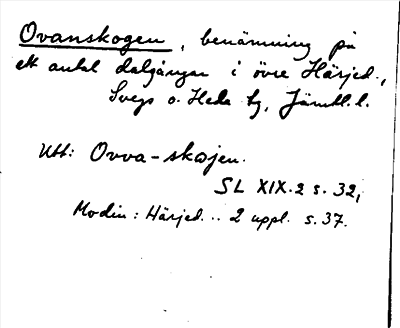 Ovanskogen, benämning på
ett antal dalgångar i övre Härjed.,
Svegs o. Hede tg, Jämtl. l.
Utt: Ovva-skojen.
SL XIX.2 s. 32,
Modin: Härjed... 2 uppl. s. 37.